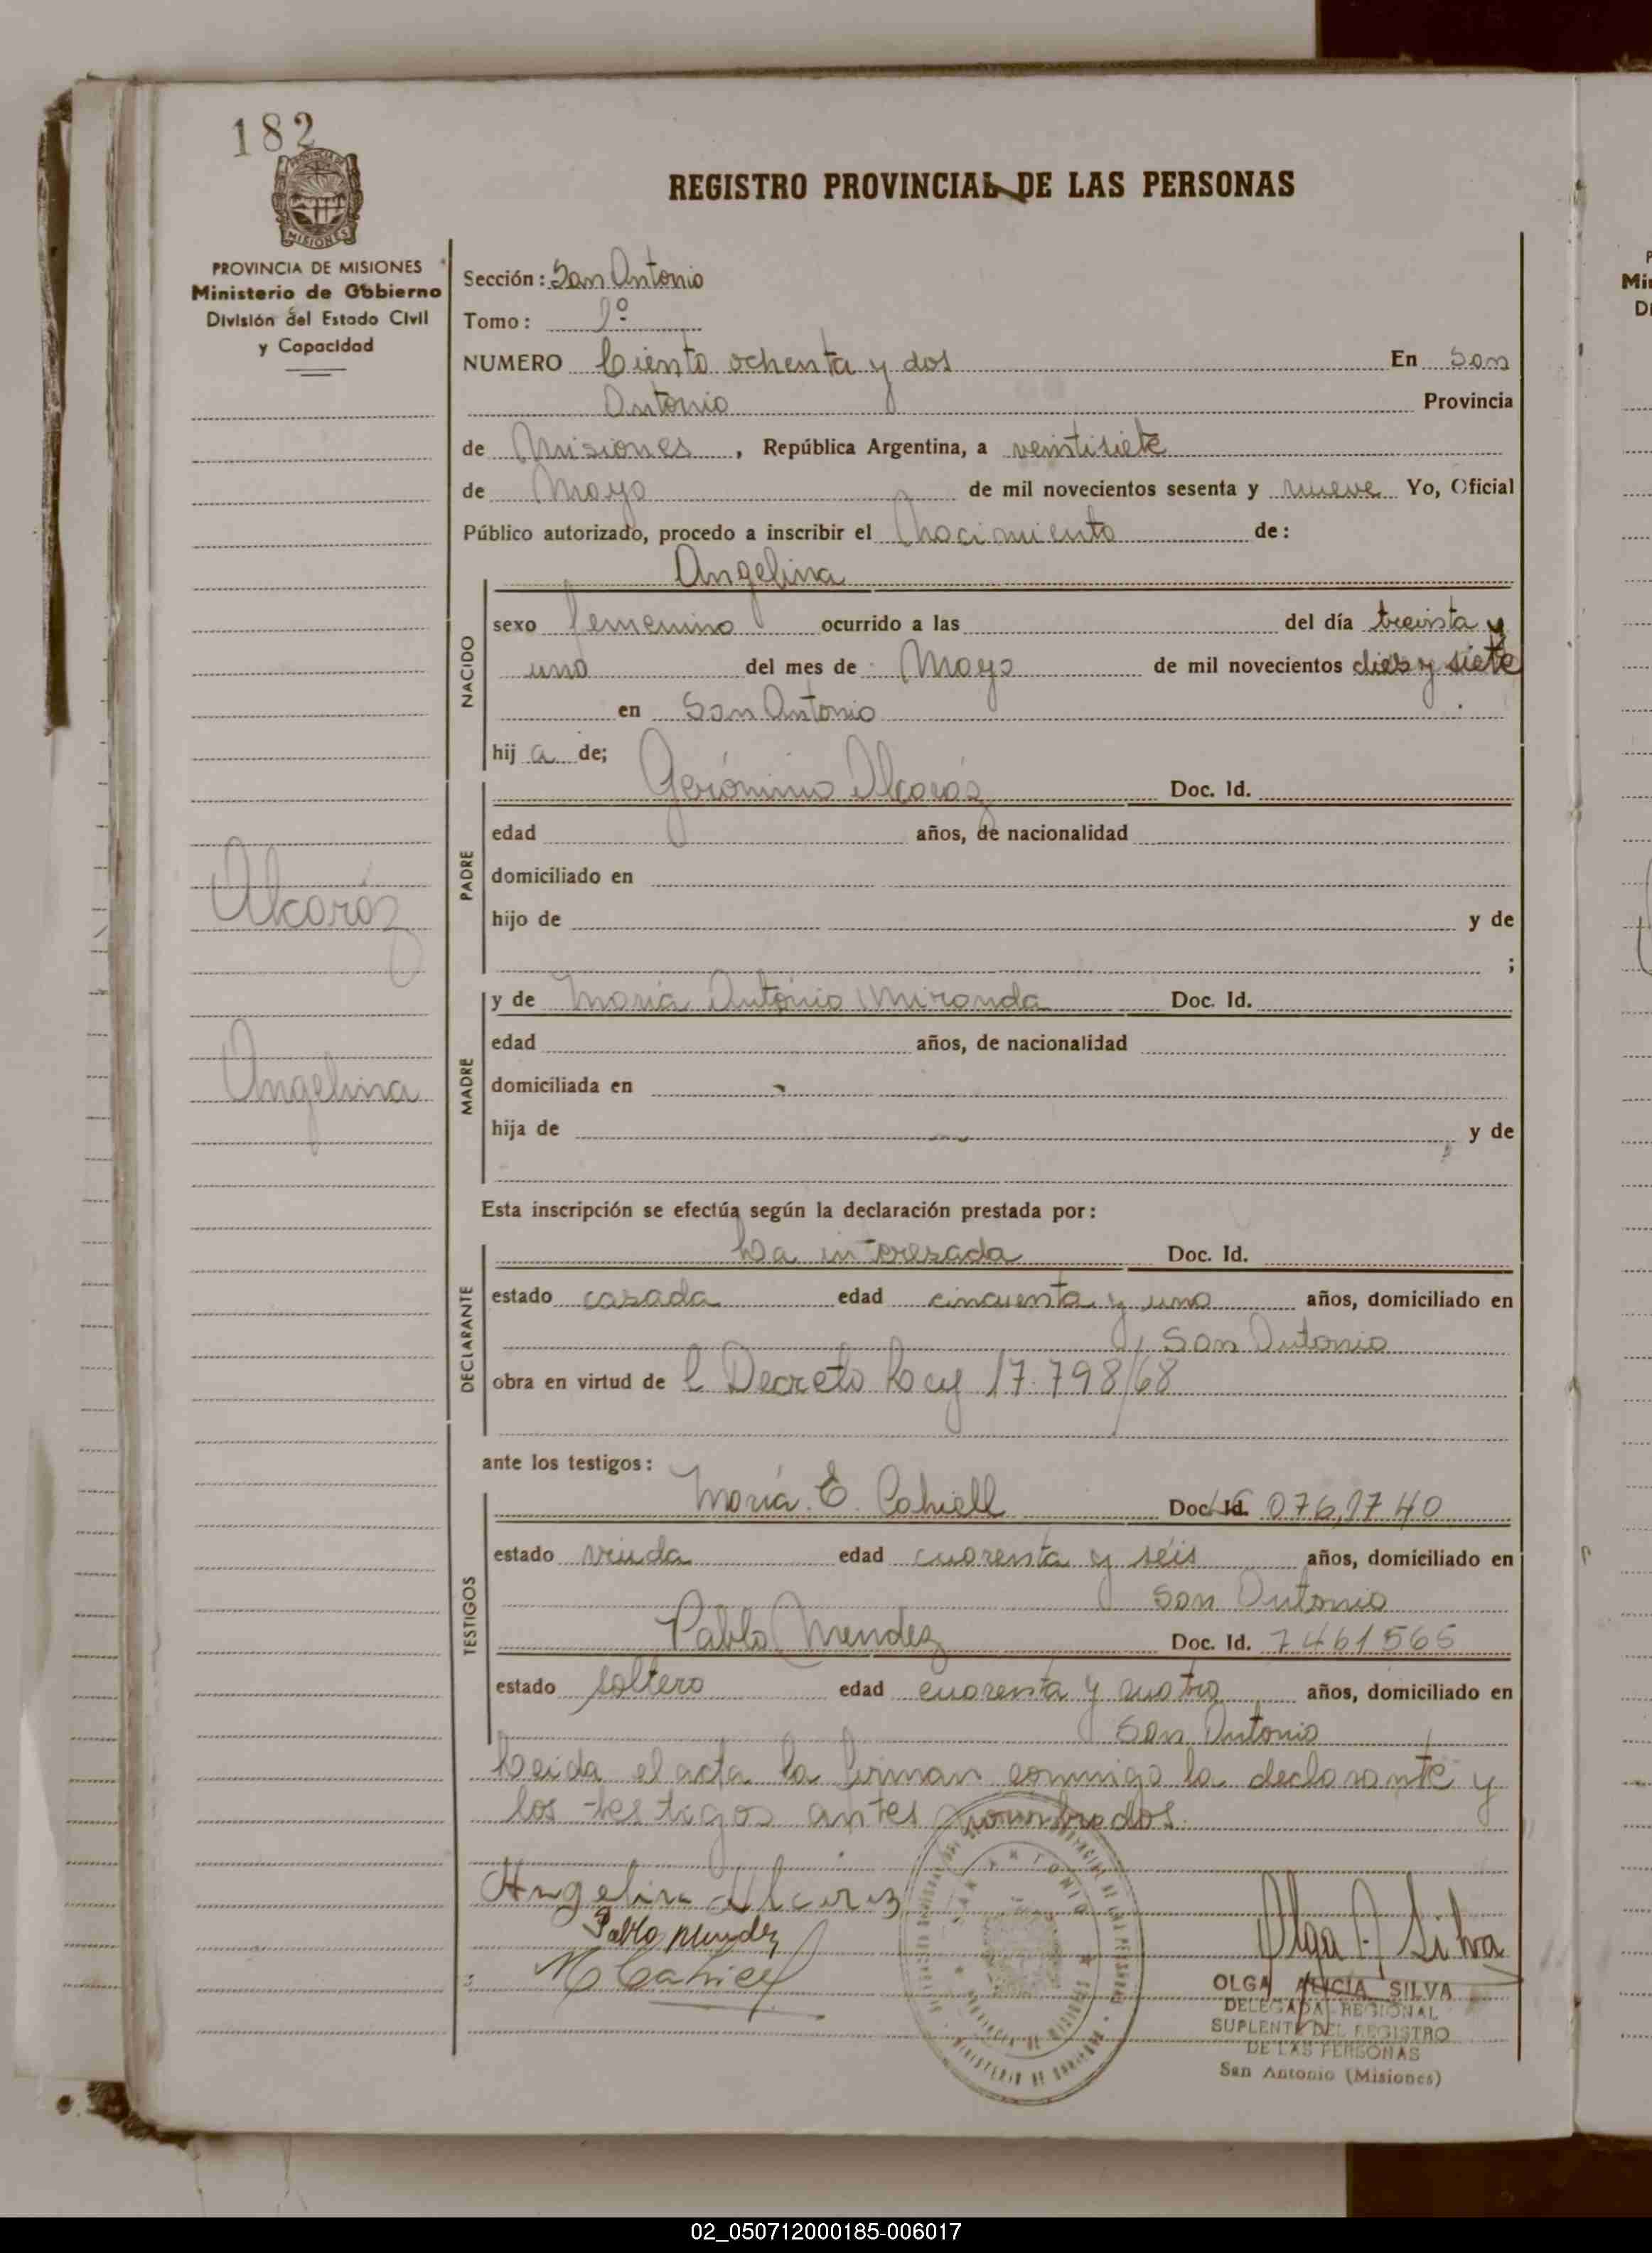 182
PROVINCIA DE
MISIONES
REGISTRO PROVINCIAL DE LAS PERSONAS
PROVINCIA DE MISIONES
Ministerio de Gobierno
División del Estado Civil
y Capacidad
Sección: San Antonio
Tomo: 1º
NUMERO Ciento ochenta y dos En San
Antonio Provincia
de Misiones, República Argentina, a veintisiete
de Mayo de mil novecientos sesenta y nueve Yo, Oficial
Público autorizado, procedo a inscribir el Nacimiento de:
Angelina
NACIDO
sexo femenino ocurrido a las del día treinta y
uno del mes de Mayo de mil novecientos diez y siete
en San Antonio
hij a de;
Gerónimo Alcaráz Doc. Id.
PADRE
edad años, de nacionalidad
domiciliado en
hijo de y de
;
Alcaráz
Angelina
MADRE
y de María Antónia Miranda Doc. Id.
edad años, de nacionalidad
domiciliada en
hija de y de
Esta inscripción se efectúa según la declaración prestada por:
DECLARANTE
La interesada Doc. Id.
estado casada edad cincuenta y uno años, domiciliado en
San Antonio
obra en virtud de l Decreto Ley 17.798/68
ante los testigos:
TESTIGOS
María E. Cahiell Doc. Id. 076,1740
estado viuda edad cuarenta y séis años, domiciliado en
San Antonio
Pablo Mendez Doc. Id. 7461565
estado soltero edad cuarenta y cuatro años, domiciliado en
San Antonio
Leida el acta la firman conmigo la declarante y
los testigos antes nombrados.
Angelina Alcaraz
Pablo Mendez
M Cahiell
Olga A. Silva
OLGA ALICIA SILVA
DELEGADA REGIONAL
SUPLENTE DEL REGISTRO
DE LAS PERSONAS
San Antonio (Misiones)
SAN ANTONIO
MINISTERIO DE GOBIERNO
02_050712000185-006017